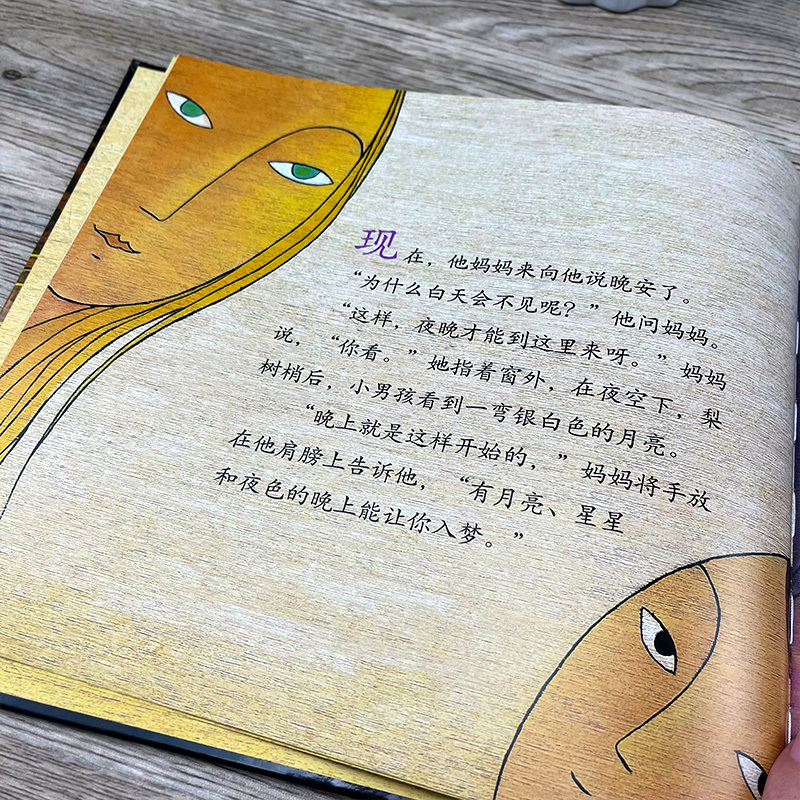 现在，他妈妈来向他说晚安了。
“为什么白天会不见呢？”他问妈妈。
“这样，夜晚才能到这里来呀。”妈妈
说，“你看。”她指着窗外，在夜空下，梨
树梢后，小男孩看到一弯银白色的月亮。
“晚上就是这样开始的，”妈妈将手放
在他肩膀上告诉他，“有月亮、星星
和夜色的晚上能让你入梦。”